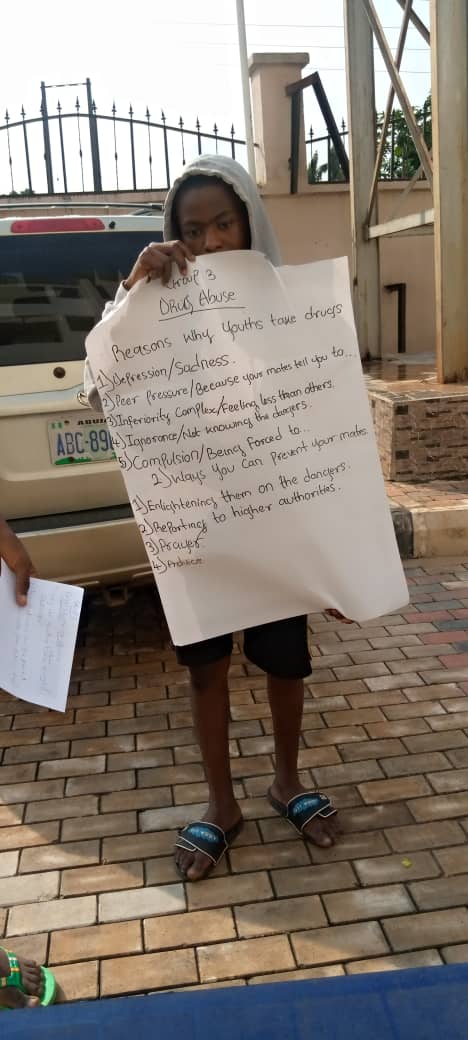 Group 3
Drug Abuse
Reasons why youths take drugs
1) Depression/Sadness.
2) Peer Pressure/Because your mates tell you to...
3) Inferiority Complex/Feeling less than others.
4) Ignorance/Not knowing the dangers.
5) Compulsion/Being forced to...
2) Ways you can Prevent your mates
1) Enlightening them on the dangers.
2) Reporting to higher authorities.
3) Prayer.
4)
ABUJA
ABC-89